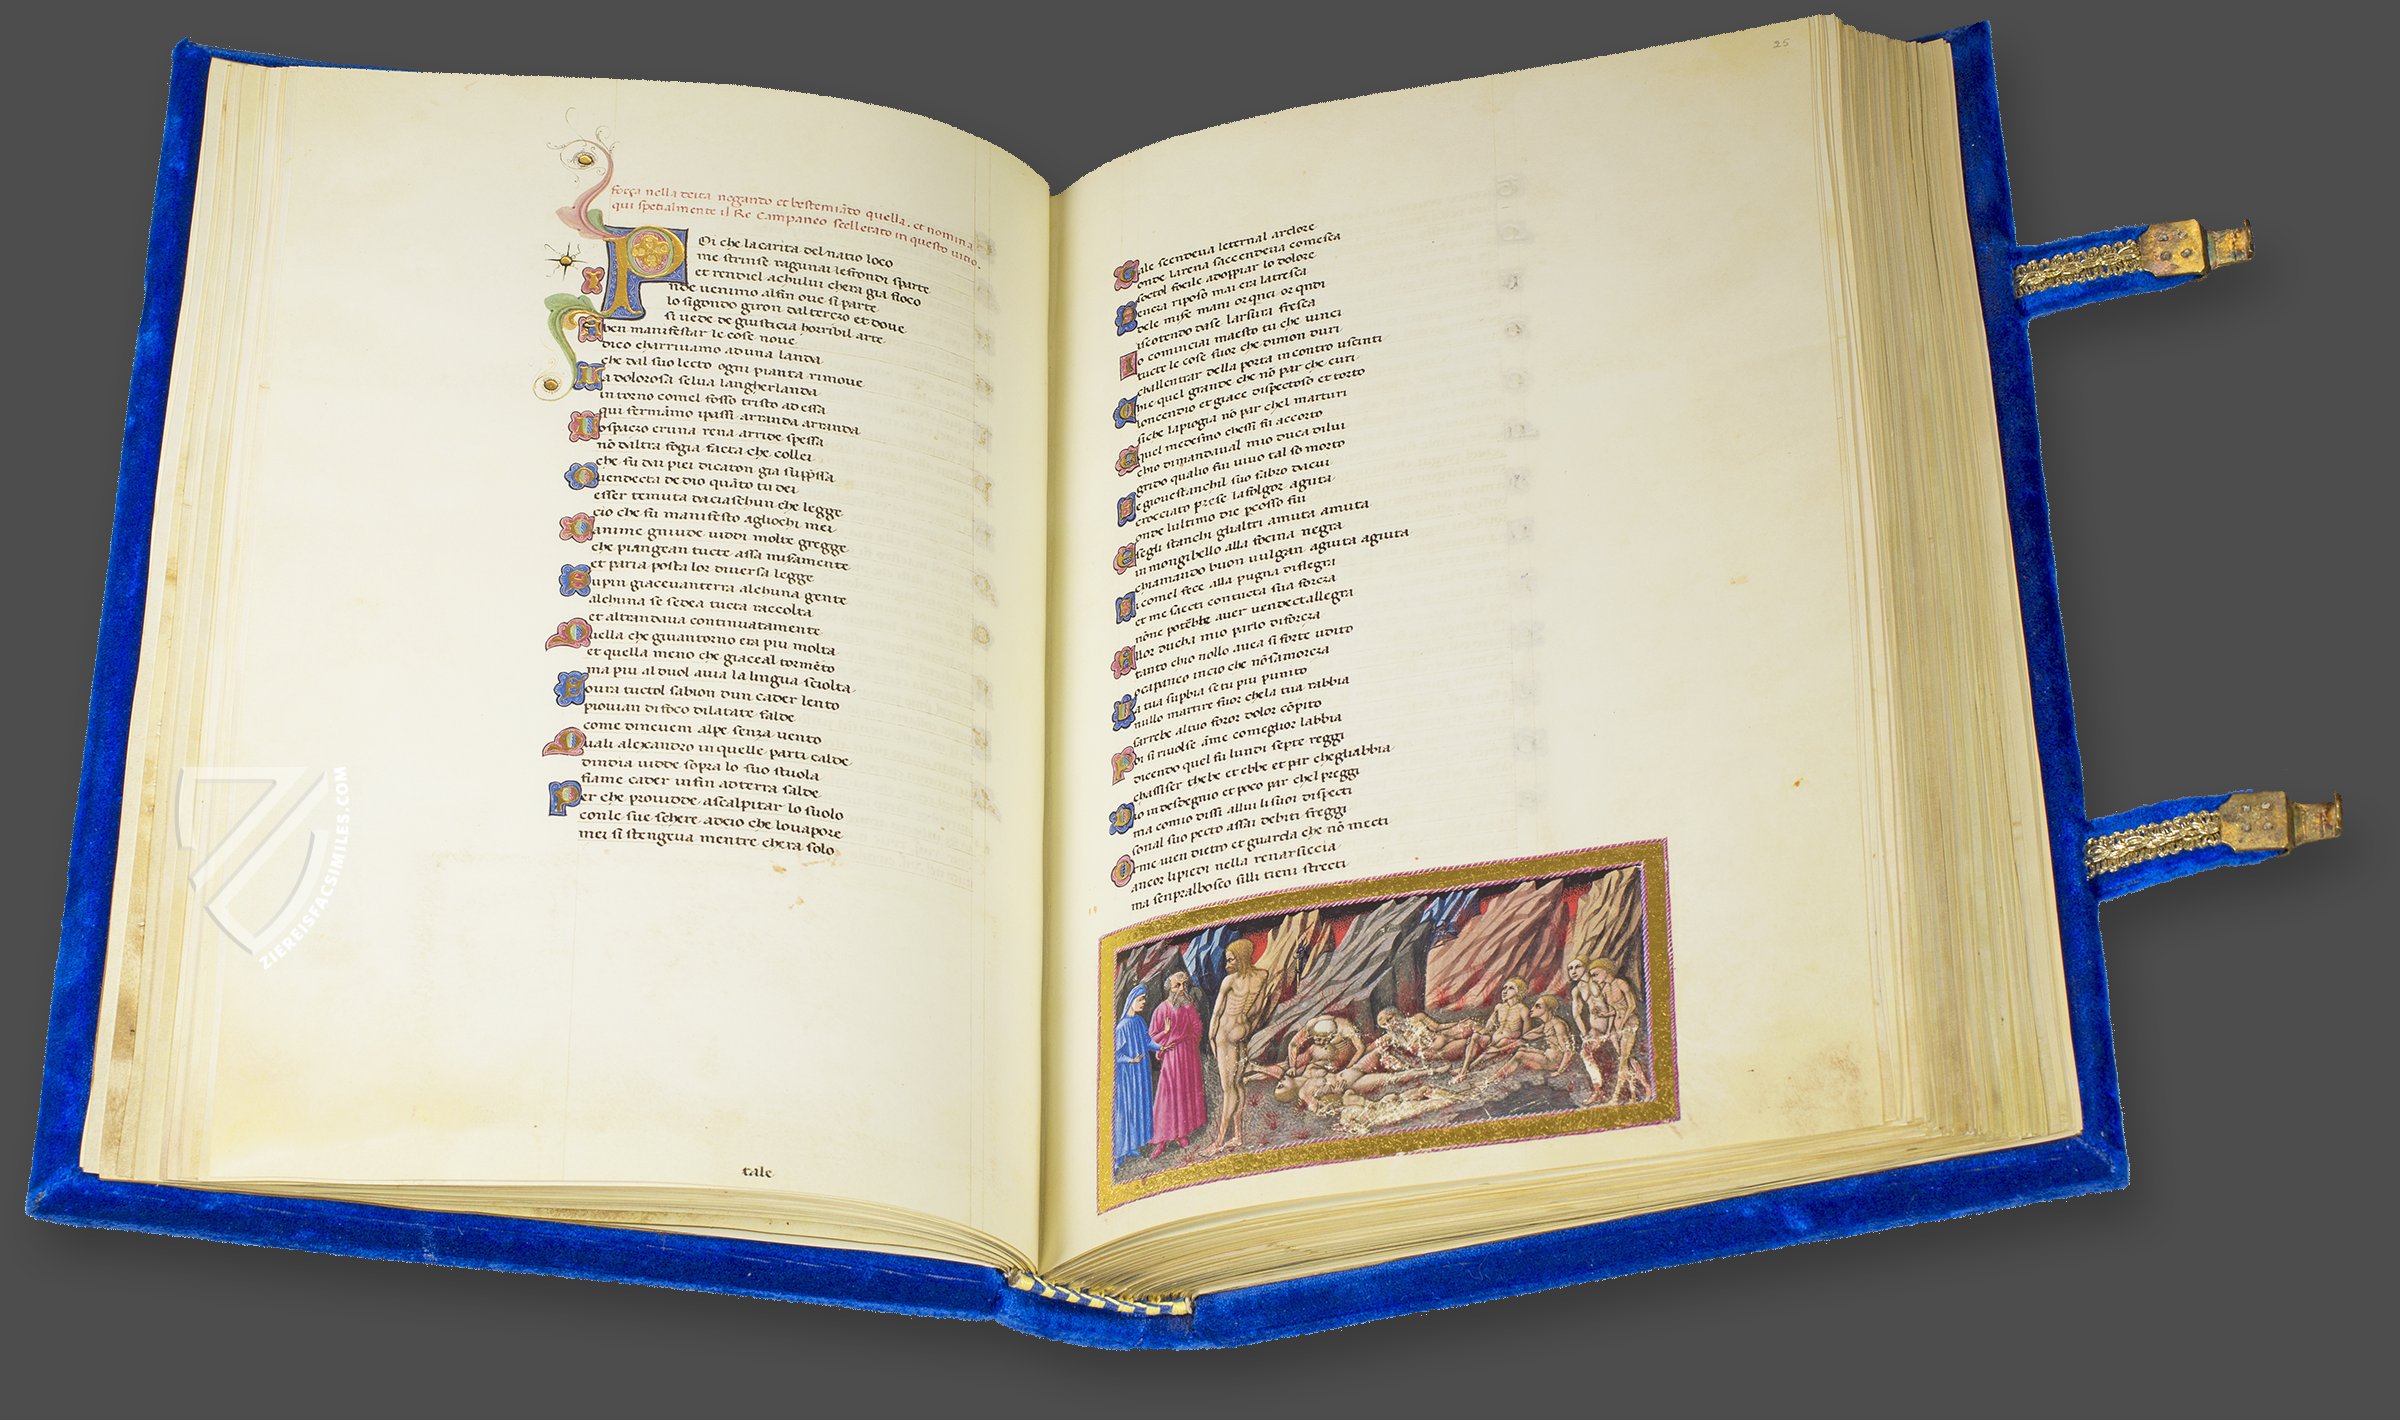 força nella deita negando et bestemiādo quella. et nomina
qui spetialmente il Re Campaneo scellerato in questo uitio.
POi che la carita del natio loco
me strinse ragunai le frondi sparte
et rendiel achului chera gia fioco
nde uenimo alfin oue si parte
lo sigondo giron dal terczo et doue
si uede de giusticia horribil arte
A ben manifestar le cose noue
dico charriuamo ad una landa
che dal suo lecto ogni pianta rimoue
La dolorosa selua langherlanda
in torno comel fosso tristo ad essa
qui fermāmo ipassi arranda arranda
Lo spaczo era una rena arride spessa
nō daltra fogia facta che collei
che fu dai piei di caton gia supp̄ssa
O uendecta de dio quāto tu dei
esser temuta da ciaschun che legge
cio che fu manifesto agliochi mei
D anime gniude uiddi molte gregge
che piangean tucte assa misamente
et paria posta lor diuersa legge
Supin giaceuan terra alchuna gente
alchuna se sedea tucta raccolta
et altrandaua continuatamente
Quella che giua ntorno era piu molta
et quella meno che giaceal tormēto
ma piu al duol auia la lingua sciolta
Soura tuctol sabion dun cader lento
piouian di foco dilatate falde
come di neue in alpe senza uento
Quali alexandro in quelle parti calde
dindia uidde sopra lo suo stuola
fiame cader infin ad terra salde
Per che prouidde ascalpitar lo suolo
con le sue schere adcio che lo uapore
mei si stengeua mentre chera solo
tale
25
Tale scendeua leternal ardore
onde larena saccendeua comesca
soctol focile adoppiar lo dolore
Senza riposo mai era latresca
dele mise mani or qnci or qndi
iscotendo dase larsura fresca
Io cominciai maesto tu che uinci
tucte le cose fuor che dimon duri
challentrar della porta incontro uscinti
Chie quel grande che nō par che curi
loncendio et giace dispectoso et torto
siche la piogia nō par chel marturi
E quel medesmo chessi fu accorto
chio dimandaual mio duca dilui
grido qualio fui uiuo tal so morto
Se gioue stanchil suo fabro dacui
crocciato prese la folgor aguta
onde lultimo die pcosso fui
E segli stanchi glialtri amuta amuta
in mongibello alla focina negra
chiamando buon uulgan agiuta agiuta
Si comel fece alla pugna di flegri
et me saecti con tucta sua forcza
nōne potēbbe auer uendectallegra
Allor ducha mio parlo di forcza
tanto chio nollo auea si forte udito
o capaneo incio che nō samorcza
La tua supbia se tu piu punito
nullo martire fuor chela tua rabbia
sarrebe altuo foror dolor cōpito
Poi si riuolse āme comeglior labbia
dicendo quel fu lundi septe reggi
chassiser thebe et ebbe et par chegliabbia
Dio indesdegnio et poco par chel preggi
ma comio dissi allui li suoi dispecti
sonal suo pecto assai debiti freggi
Orme uien dietro et guarda che nō mecti
ancor li piedi nella renarsiccia
ma senpralbosco silli tieni strecti
ZIEREISFACSIMILES.COM